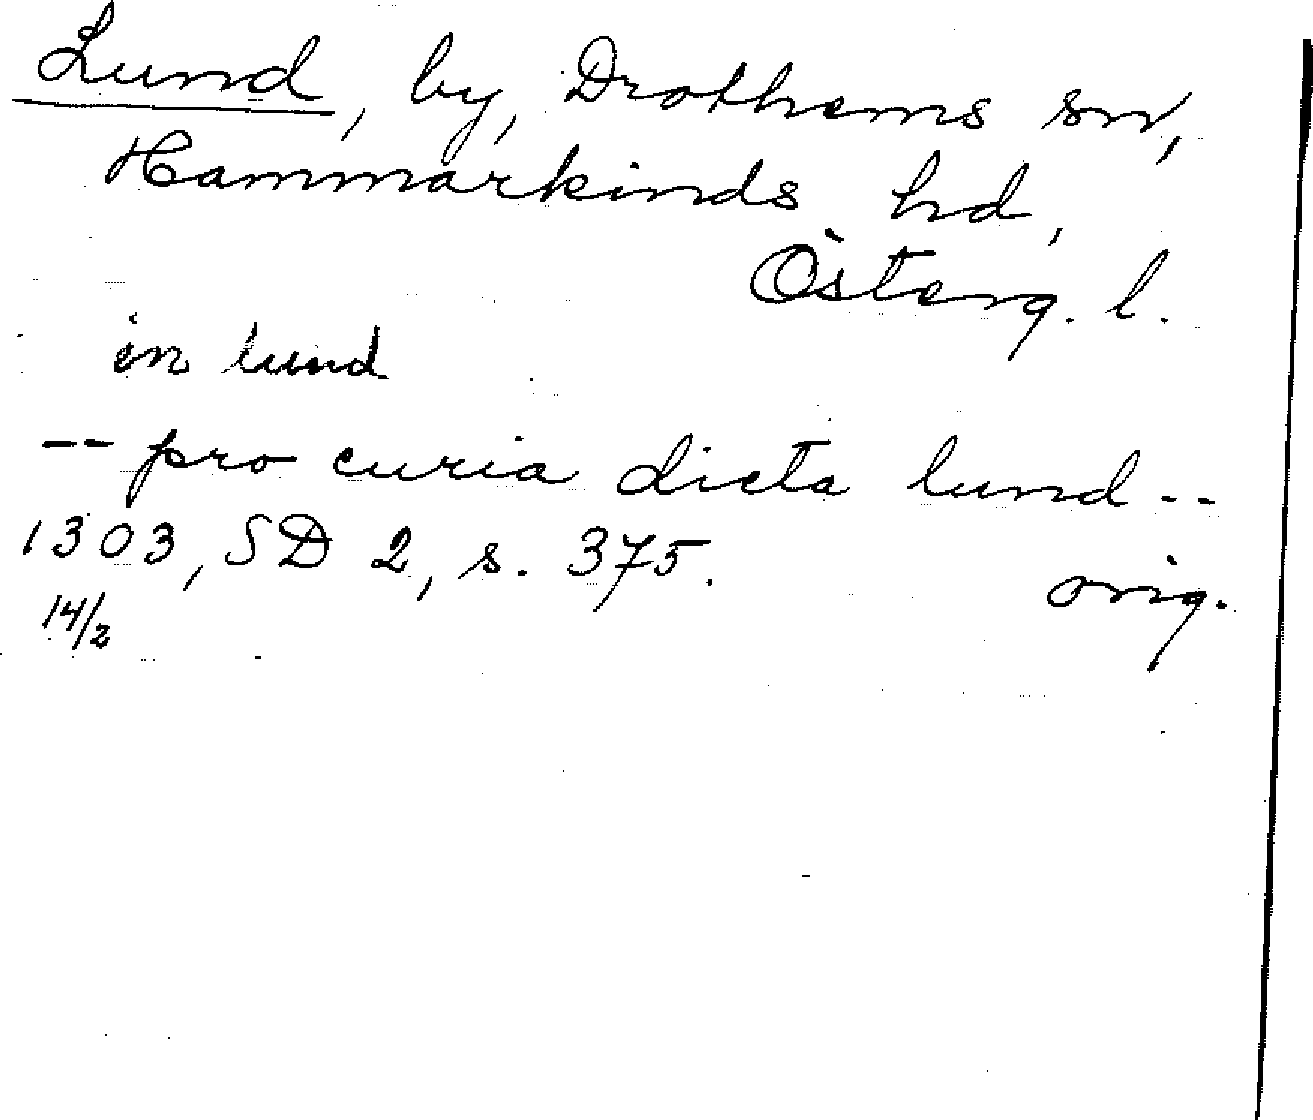 Lund, by, Drothems sn,
Hammarkinds hd,
Österg. l.
in lund
-- pro curia dicta lund --
1303, SD 2, s. 375. orig.
14/2